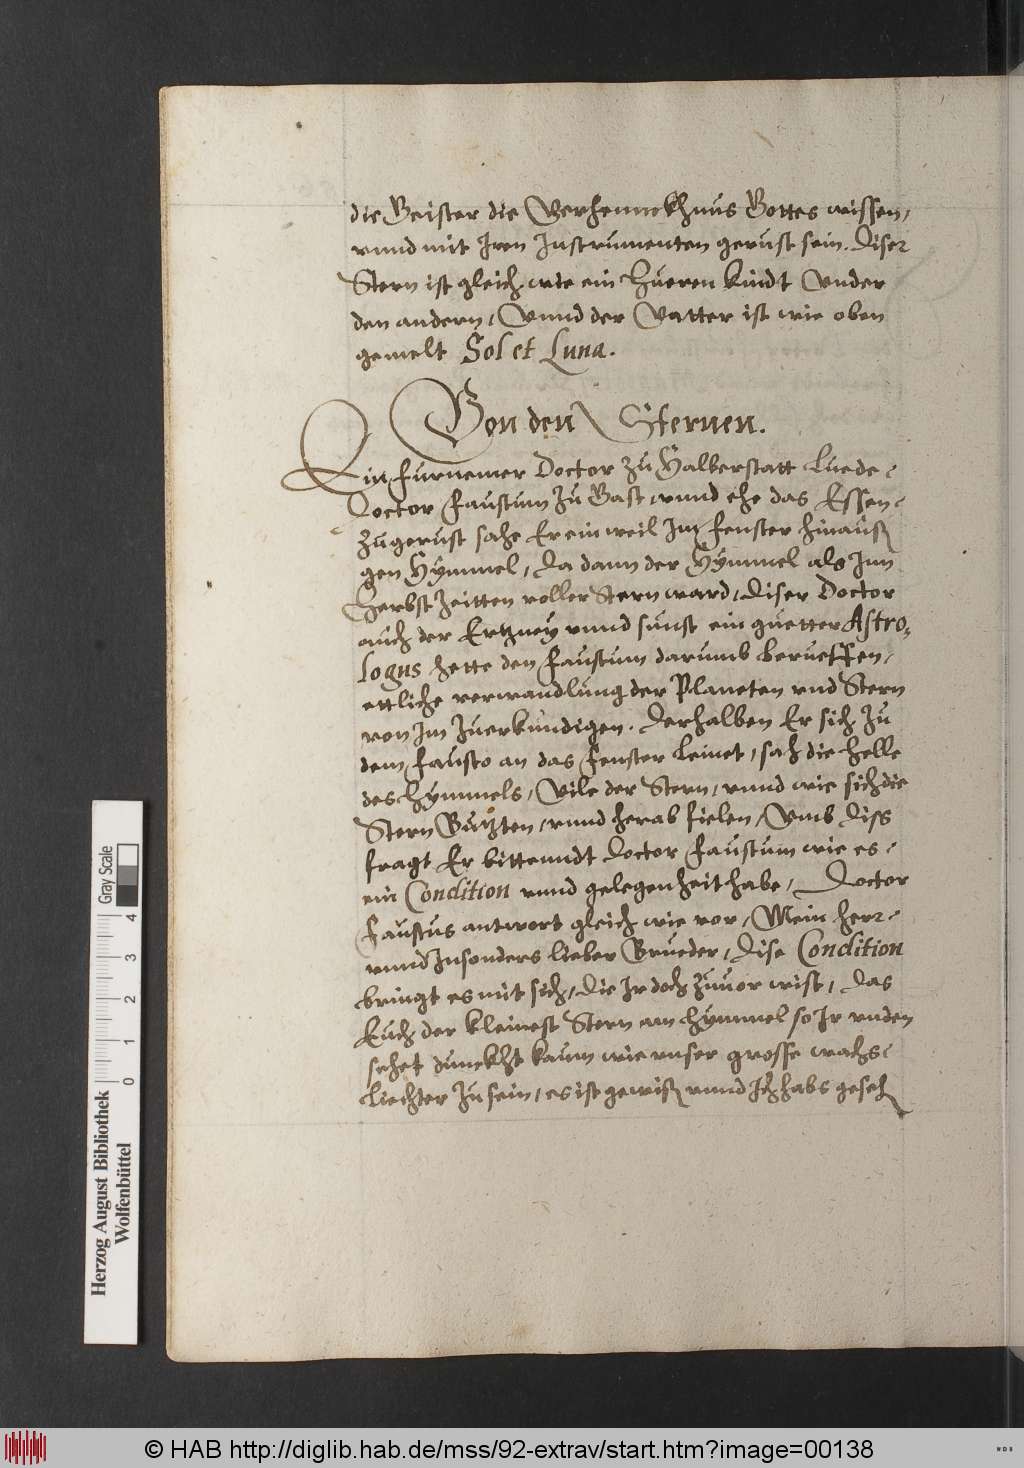 die Geister die Verhennckhnus Gottes wissen,
vnnd mit Iren Instrumenten gerust sein. Diser
Stern ist gleich wie ein Hueren kindt Vnder
den andern, Vnnd der Vatter ist wie oben
gemelt Sol et Luna.
Von den Sternen.
Ein furnemer Doctor zu Halberstatt Luede
Doctor Faustum zu Gast vnnd ehe das Essen
zugerust sahe Er ein weil Im fenster hinauß
gen Hymmel, da dann der Hymmel als Inn
Herbst zeitten voller Stern ward, Diser Doctor
auch der Ertzney vnnd sunst ein guetter Astro,
logus hette den Faustum darumb beruessen,
ettliche verwandlung der Planeten vnd Stern
von Im zuerkundigen. Derhalben Er sich zu
dem Fausto an das Fenster leinet, sah die helle
des Hymmels, Vile der Stern, vnnd wie sich die
Stern Butzten, vnnd herab fielen, Vmb diss
fragt Er bittenndt Doctor Faustum wie es
ein Condition vnnd gelegenheit habe, Doctor
Faustus antwort gleich wie vor, Mein herr
vnnd Insonders lieber Brueder, dise Condition
bringt es mit sich, die Ir doch zuuor wist, das
Euch der kleinest Stern am hymmel so Ir vnden
sehet dunckht kaum wie vnser grosse wachs
liechter zu sein, es ist gewiß vnnd Ich habs geseh
Herzog August Bibliothek
Wolfenbüttel
Gray Scale
0 1 2 3 4
© HAB http://diglib.hab.de/mss/92-extrav/start.htm?image=00138